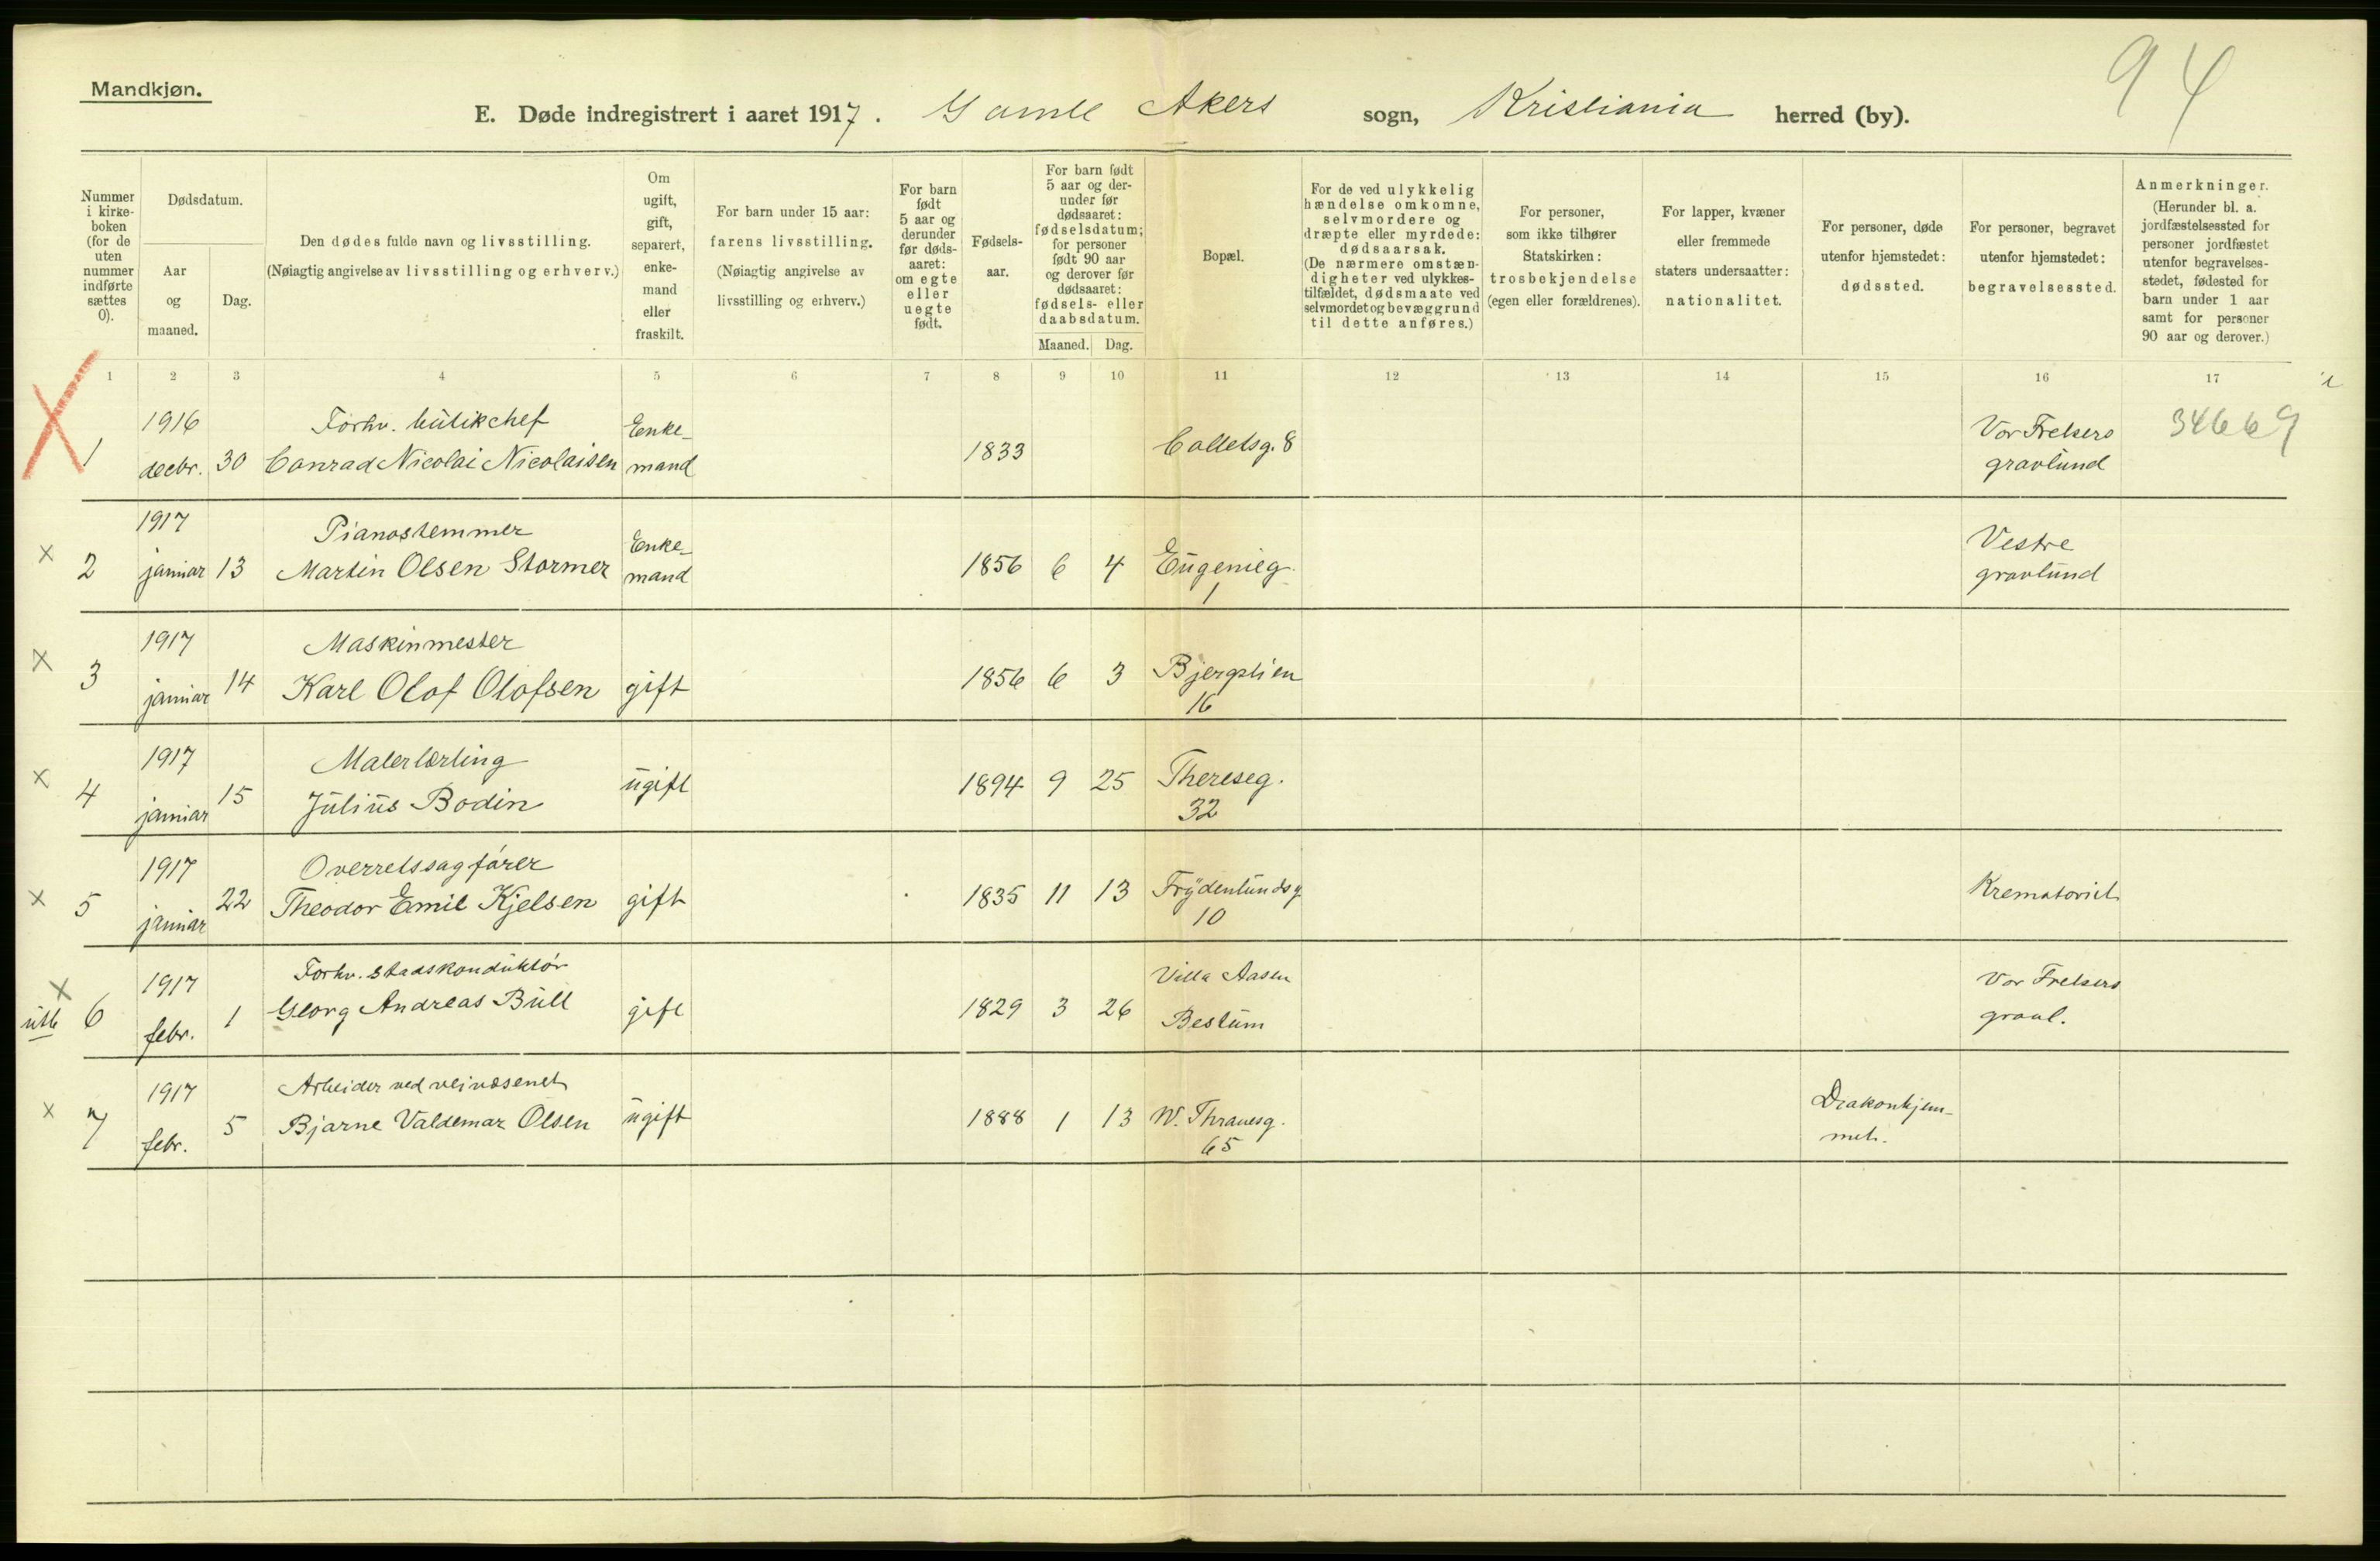 94
Mandkjøn.
E. Døde indregistrert i aaret 1917. Gamle Akers sogn, Kristiania herred (by).
Nummer
i kirke-
boken
(for de
uten
nummer
indførte
sættes
0).
Dødsdatum.
Aar
og
maaned.
Dag.
Den dødes fulde navn og livsstilling.
(Nøiagtig angivelse av livsstilling og erhverv.)
Om
ugift,
gift,
separert,
enke-
mand
eller
fraskilt.
For barn under 15 aar:
farens livsstilling.
(Nøiagtig angivelse av
livsstilling og erhverv.)
For barn
født
5 aar og
derunder
før døds-
aaret:
om egte
eller
uegte
født.
Fødsels-
aar.
For barn født
5 aar og der-
under før
dødsaaret:
fødselsdatum;
for personer
født 90 aar
og derover før
dødsaaret:
fødsels- eller
daabsdatum.
Maaned. Dag.
Bopæl.
For de ved ulykkelig
hændelse omkomne,
selvmordere og
dræpte eller myrdede:
dødsaarsak.
(De nærmere omstæn-
digheter ved ulykkes-
tilfældet, dødsmaate ved
selvmordet og bevæggrund
til dette anføres.)
For personer,
som ikke tilhører
Statskirken:
trosbekjendelse
(egen eller forældrenes).
For lapper, kvæner
eller fremmede
staters undersaatter:
nationalitet.
For personer, døde
utenfor hjemstedet:
dødssted.
For personer, begravet
utenfor hjemstedet:
begravelsessted.
Anmerkninger.
(Herunder bl. a.
jordfæstelsessted for
personer jordfæstet
utenfor begravelses-
stedet, fødested for
barn under 1 aar
samt for personer
90 aar og derover.)
1 2 3 4 5 6 7 8 9 10 11 12 13 14 15 16 17
1916 Forhv. butikchef Enke- Vor Frelsers 34669
1 decbr. 30 Conrad Nicolai Nicolaisen mand 1833 Colletsg. 8 gravlund
1917 Pianostemmer Enke- Vestre
x 2 januar 13 Martin Olsen Stormer mand 1856 6 4 Eugenieg. gravlund
1
1917 Maskinmester
x 3 januar 14 Karl Olof Olofsen gift 1856 6 3 Bjergslien
16
1917 Malerlærling
x 4 januar 15 Julius Bodin ugift 1894 9 25 Thereseg.
32
1917 Overretssagfører
x 5 januar 22 Theodor Emil Kjelsen gift 1835 11 13 Frydenlundsg. Krematoriet
10
x 1917 Forhv. stadskonduktör Villa Aasen Vor Frelsers
utb 6 febr. 1 Georg Andreas Bull gift 1829 3 26 Bestum gravl.
1917 Arbeider ved veivæsenet Diakonhjem-
x 7 febr. 5 Bjarne Valdemar Olsen ugift 1888 1 13 W. Thranesg. met.
65